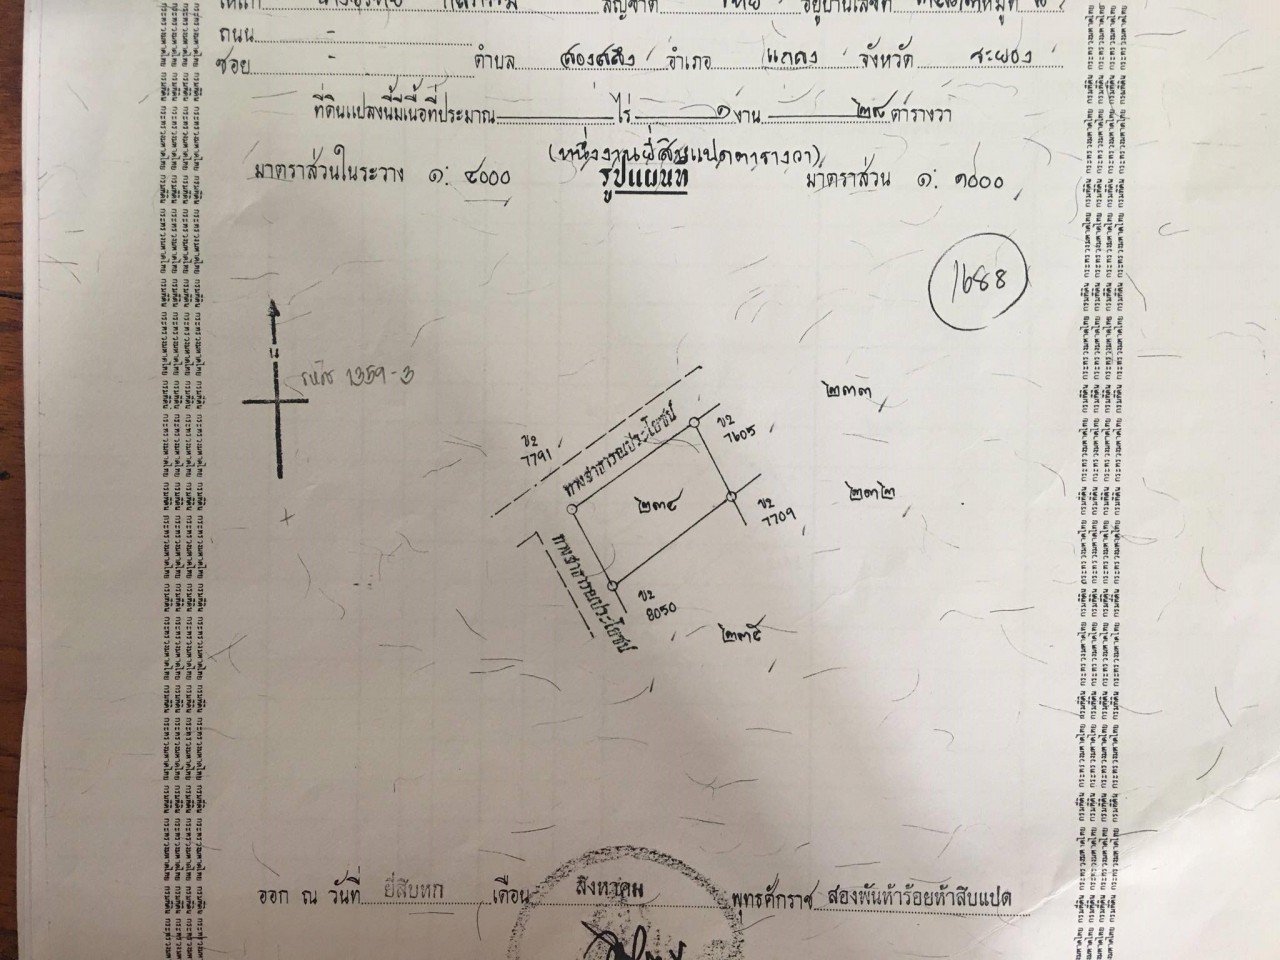 ถนน -
ซอย - ตำบล สองสลึง อำเภอ แกลง จังหวัด ระยอง
ที่ดินแปลงนี้มีเนื้อที่ประมาณ ไร่ ๑ งาน ๒๘ ตารางวา
(หนึ่งงานยี่สิบแปดตารางวา)
มาตราส่วนในระวาง ๑: ๔๐๐๐ รูปแผนที่ มาตราส่วน ๑: ๑๐๐๐
1688
น
1359-3
๒๓๓
ทางสาธารณประโยชน์
ข2 7605
ข2 7791
๒๓๔
๒๓๒
ข2 7709
ทางสาธารณประโยชน์
ข2 8050
๒๓๕
ออก ณ วันที่ ยี่สิบหก เดือน สิงหาคม พุทธศักราช สองพันห้าร้อยห้าสิบแปด
กรมที่ดิน กระทรวงมหาดไทย